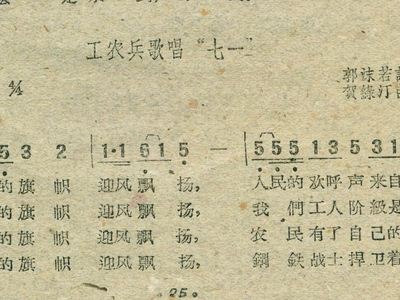 工农兵歌唱“七一”
郭沫若
賀綠汀
4/4
5 3 2 | 1·1 6 1 5 — | 5 5 5 1 3 5 3 1
的旗帜 迎风飘扬, 人民的欢呼声来自
的旗帜 迎风飘扬, 我們工人阶級是
的旗帜 迎风飘扬, 农民有了自己的
的旗帜 迎风飘扬, 鋼鉄战士捍卫着
·25·